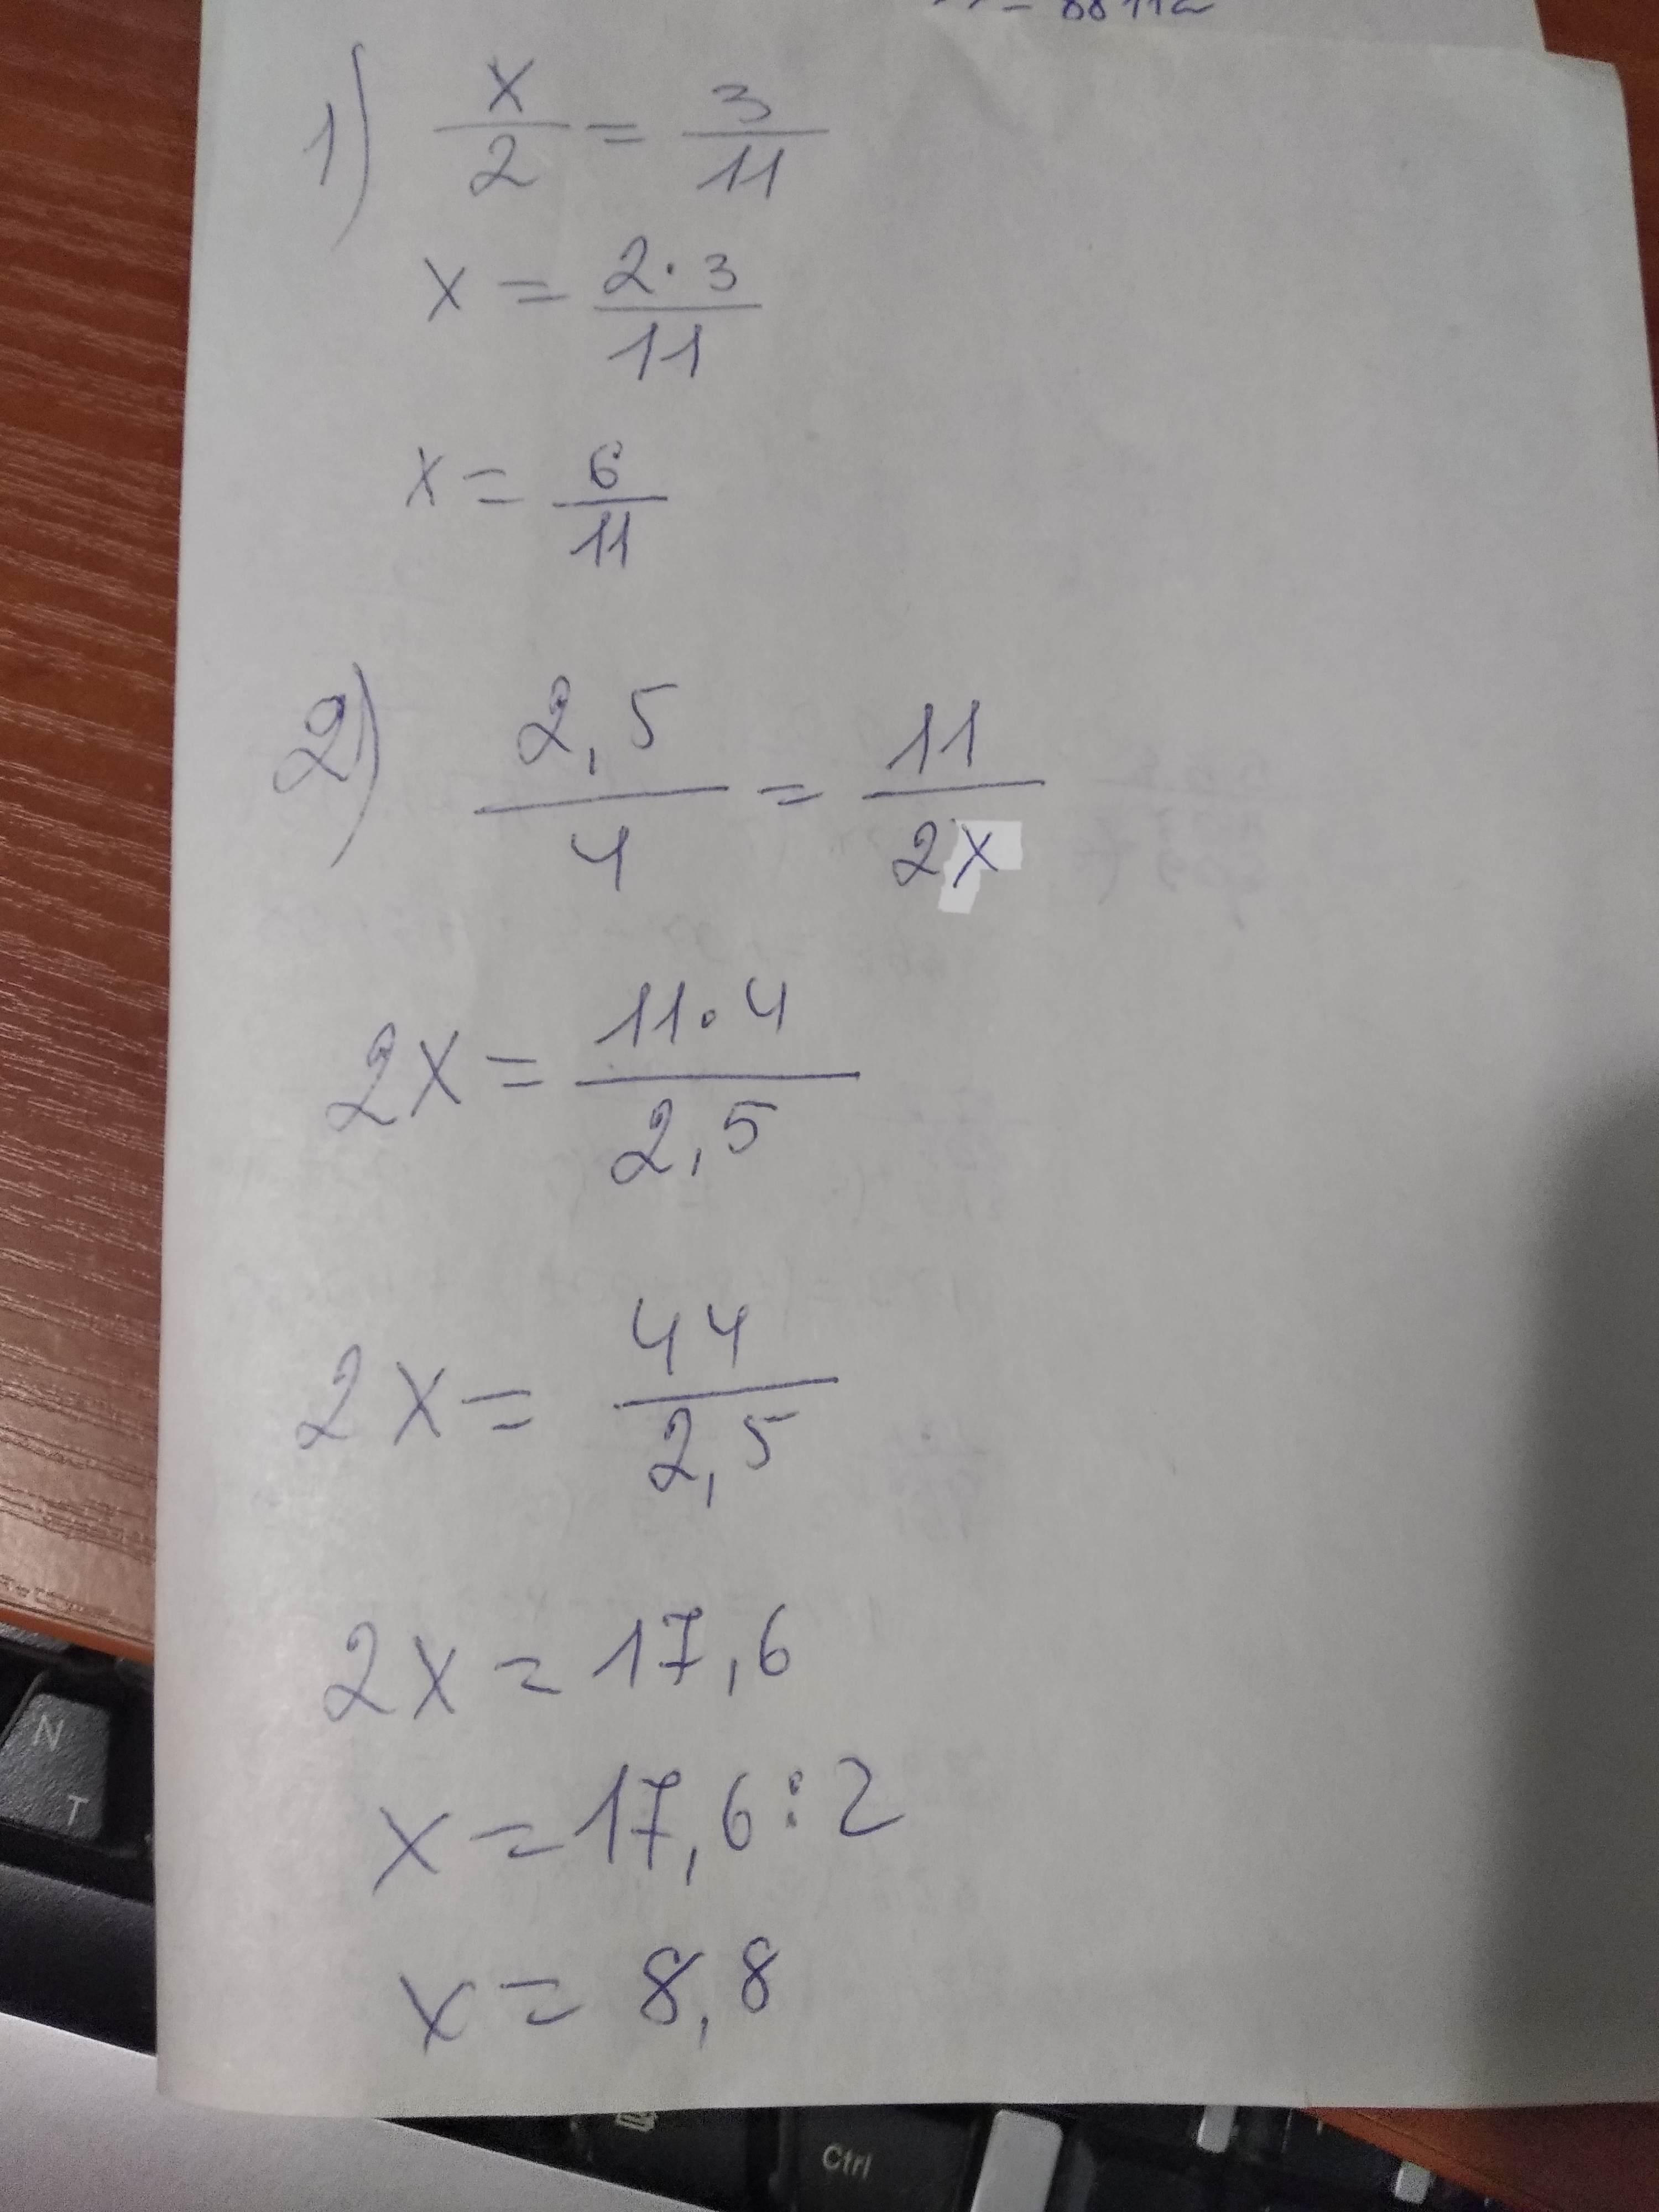 1) x/2 = 3/11
x = 2·3/11
x = 6/11
2) 2,5/4 = 11/2x
2x = 11·4/2,5
2x = 44/2,5
2x = 17,6
x = 17,6:2
x = 8,8
N
T
Ctrl